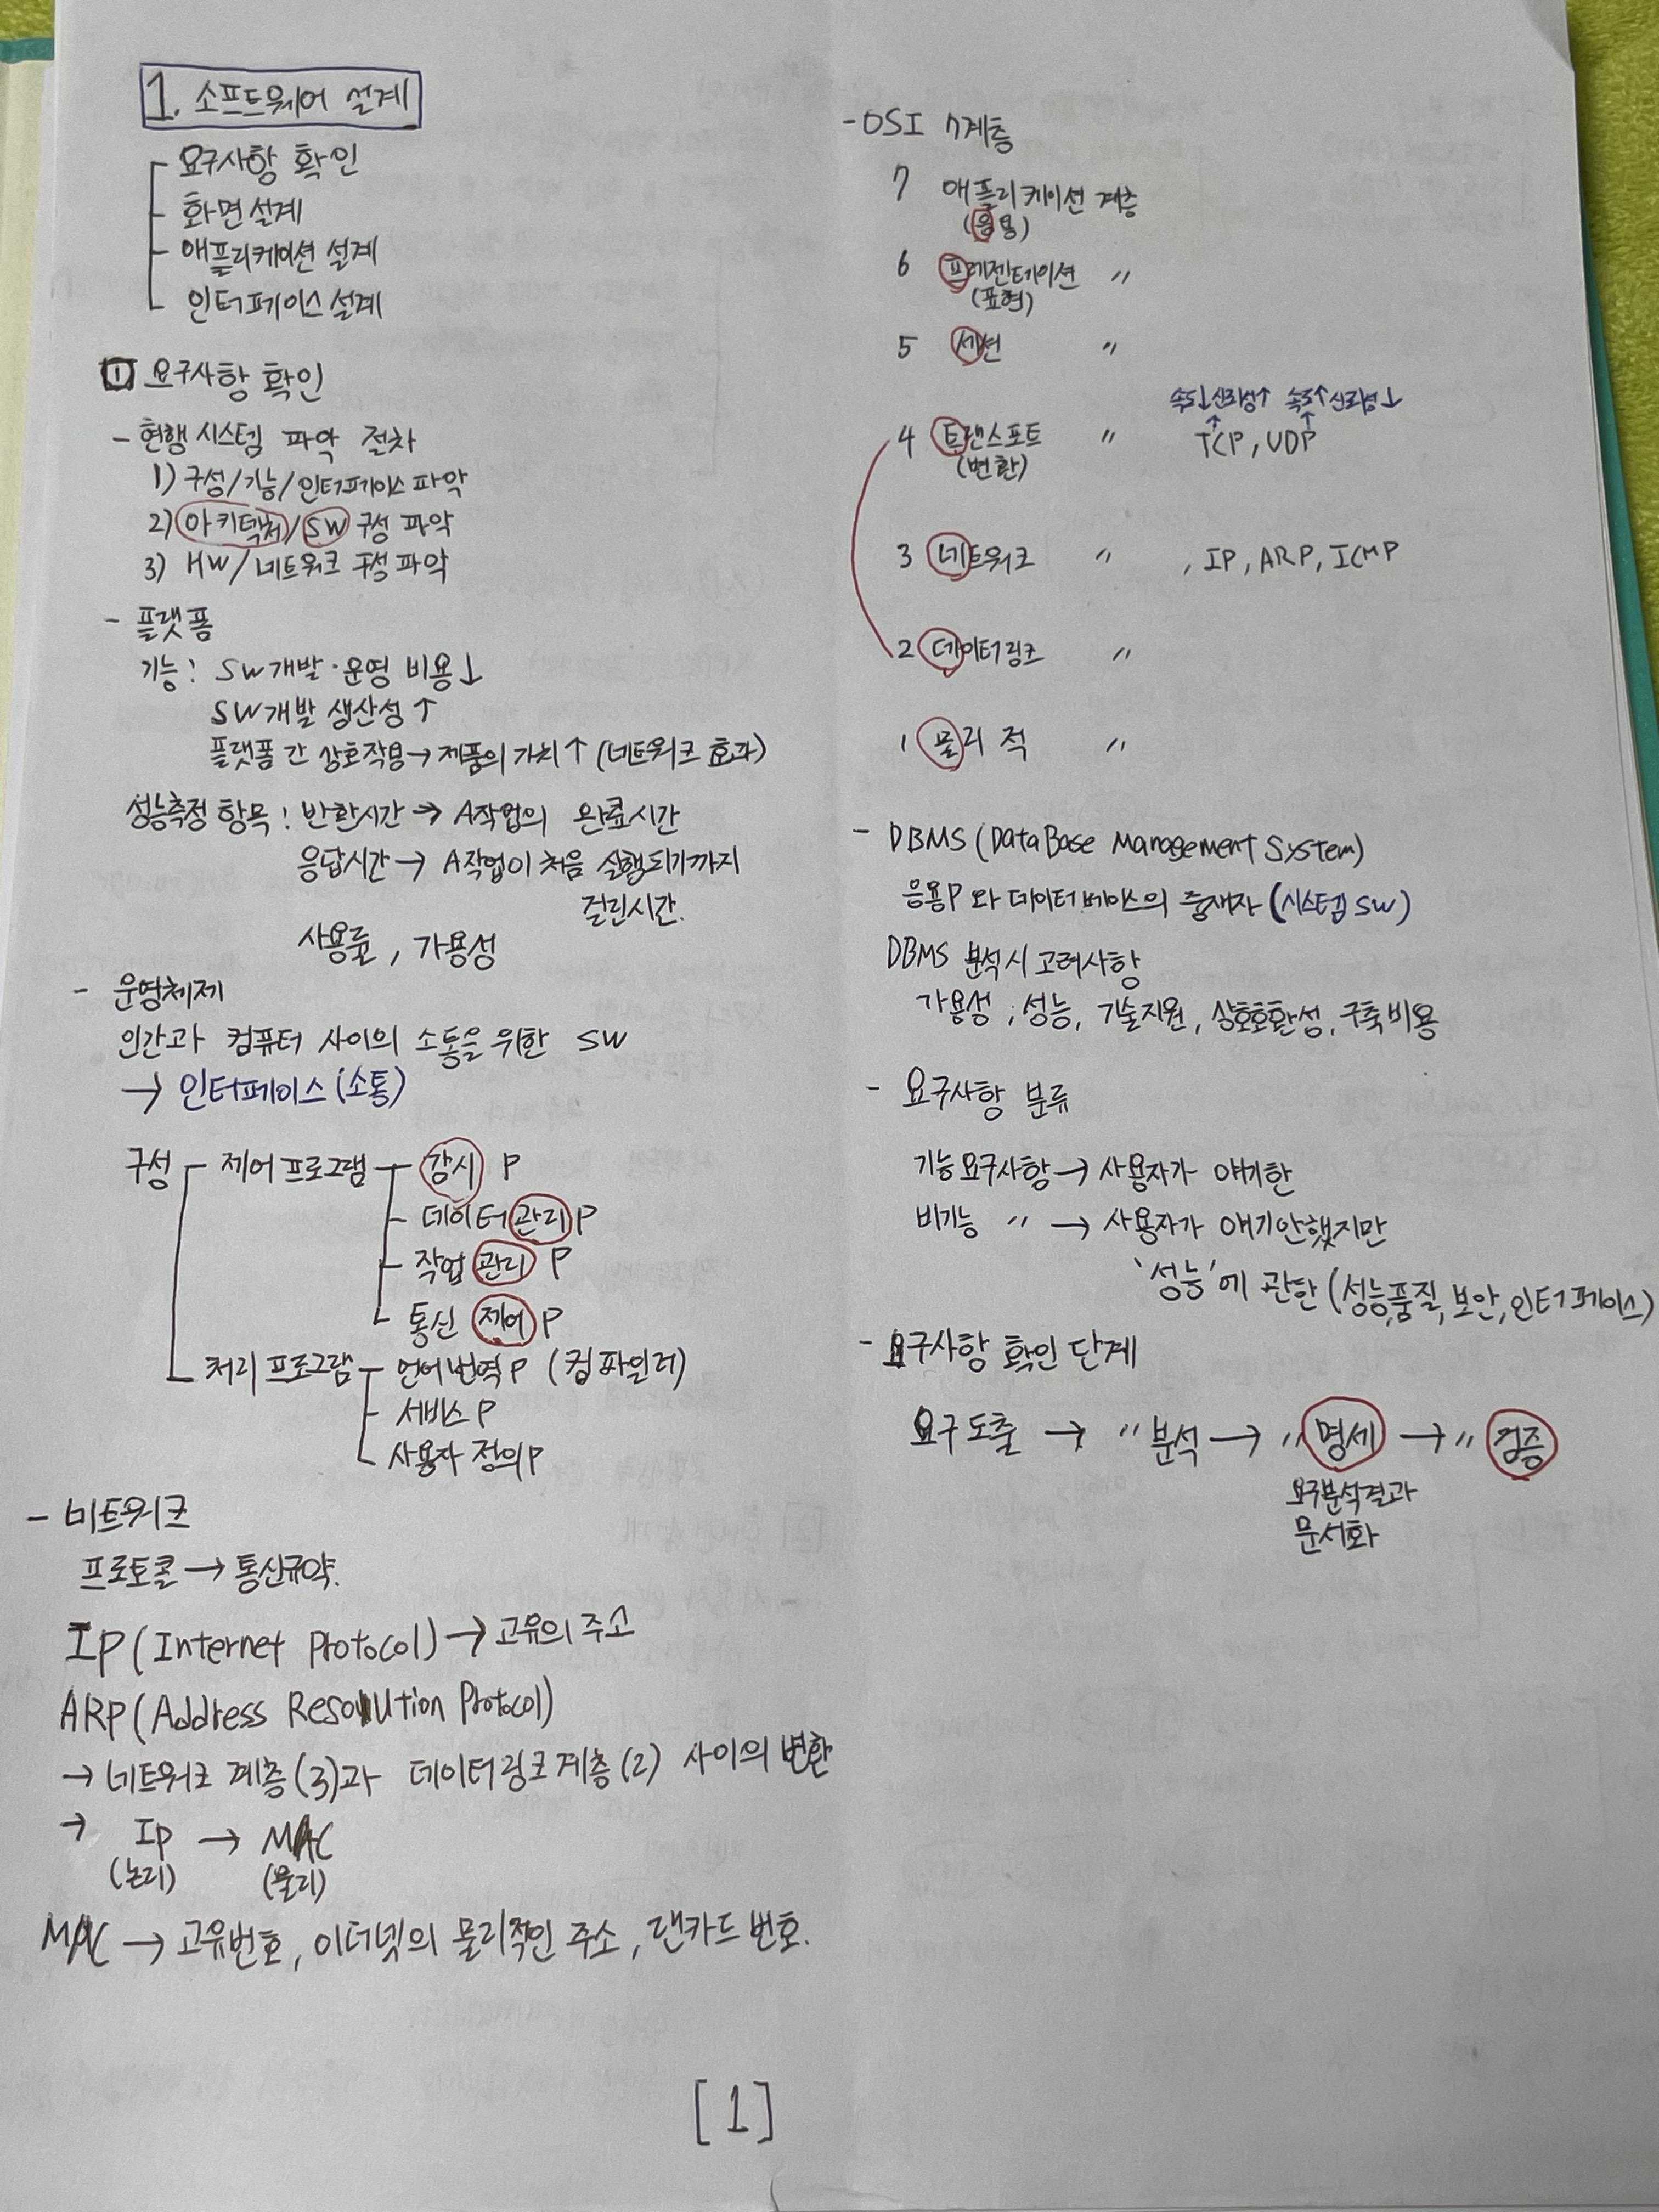 1. 소프트웨어 설계
요구사항 확인
화면설계
애플리케이션 설계
인터페이스 설계
1 요구사항 확인
- 현행 시스템 파악 절차
1) 구성/기능/인터페이스 파악
2) 아키텍처/SW 구성 파악
3) HW/네트워크 구성 파악
- 플랫폼
기능: SW개발·운영 비용↓
SW개발 생산성↑
플랫폼 간 상호작용→제품의 가치↑ (네트워크 효과)
성능측정 항목: 반환시간 → A작업의 완료시간
응답시간 → A작업이 처음 실행되기까지
걸린시간.
사용률, 가용성
- 운영체제
인간과 컴퓨터 사이의 소통을 위한 SW
→ 인터페이스(소통)
구성 제어프로그램 감시 P
데이터관리P
작업관리 P
통신 제어 P
처리프로그램 언어번역P (컴파일러)
서비스P
사용자 정의P
- 네트워크
프로토콜 → 통신규약.
IP(Internet Protocol) → 고유의 주소
ARP(Address Resolution Protocol)
→ 네트워크 계층(3)과 데이터링크계층(2) 사이의 변환
→ IP → MAC
(논리) (물리)
MAC → 고유번호, 이더넷의 물리적인 주소, 랜카드 번호.
- OSI 7계층
7 애플리케이션 계층
(응용)
6 프레젠테이션 〃
(표현)
5 세션 〃
속도↓신뢰성↑ 속도↑신뢰성↓
↑ ↑
4 트랜스포트 〃 TCP, UDP
(변환)
3 네트워크 〃 , IP, ARP, ICMP
2 데이터링크 〃
1 물리적 〃
- DBMS (DataBase Management System)
응용P와 데이터베이스의 중재자 (시스템 SW)
DBMS 분석시 고려사항
가용성, 성능, 기술지원, 상호호환성, 구축비용
- 요구사항 분류
기능요구사항 → 사용자가 얘기한
비기능 〃 → 사용자가 얘기안했지만
'성능'에 관한 (성능,품질,보안,인터페이스)
- 요구사항 확인 단계
요구도출 → 〃분석 → 〃명세 → 〃검증
요구분석결과
문서화
[1]